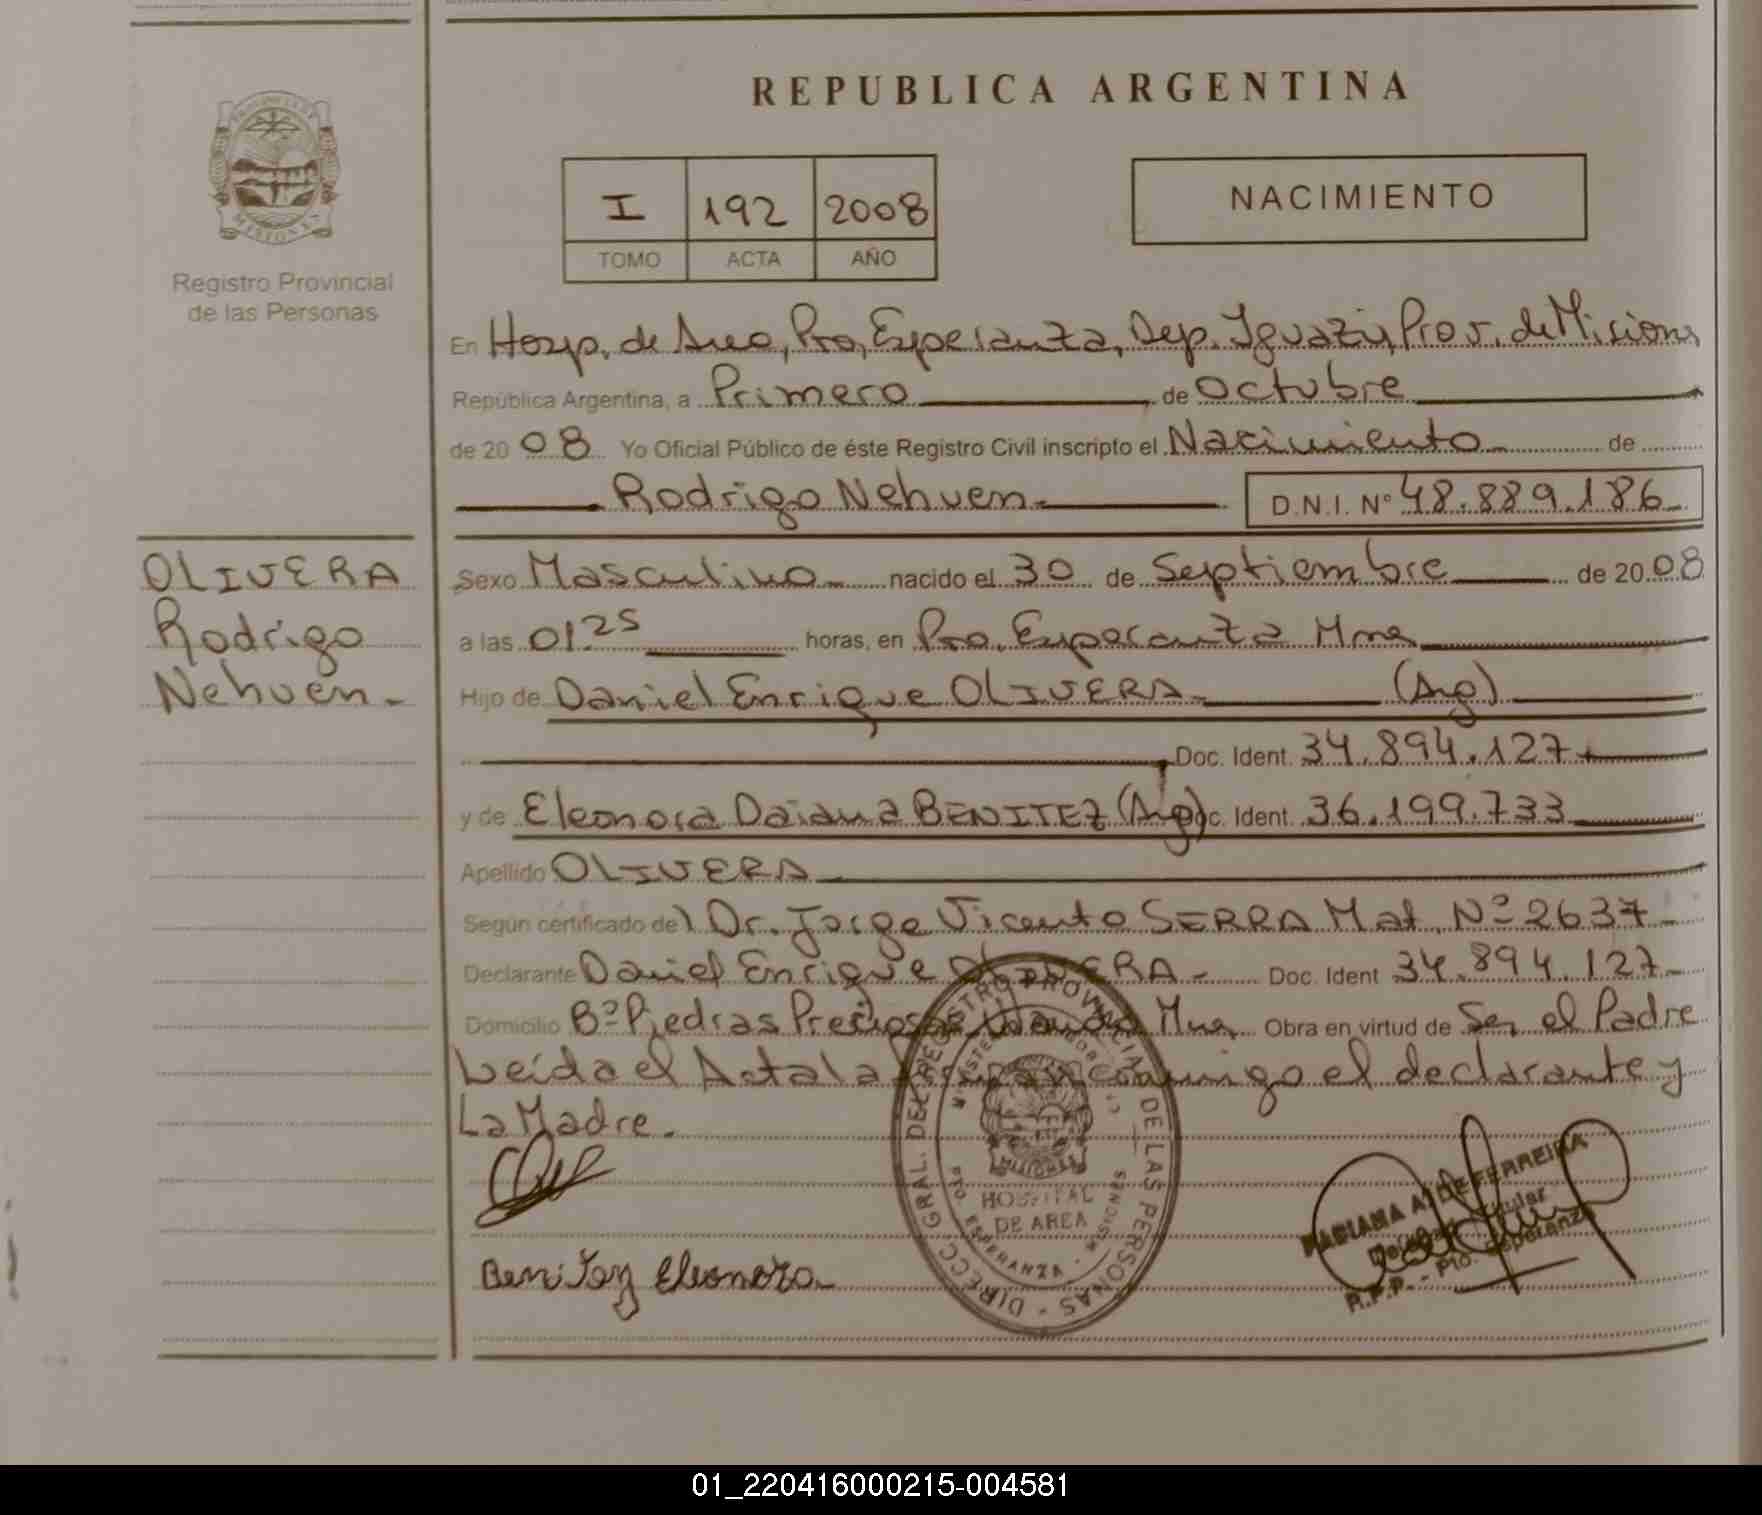 REPUBLICA ARGENTINA
PROVINCIA DE MISIONES
Registro Provincial
de las Personas
I 192 2008
TOMO ACTA AÑO
NACIMIENTO
En Hosp. de Area, Pto, Esperanza, Dep. Iguazú, Prov. de Misiones
República Argentina, a Primero de Octubre
de 20 08 Yo Oficial Público de éste Registro Civil inscripto el Nacimiento de
Rodrigo Nehuen D.N.I. Nº 48.889.186
OLIVERA
Rodrigo
Nehuen
Sexo Masculino nacido el 30 de Septiembre de 20 08
a las 01.25 horas, en Pto. Esperanza Mnes
Hijo de Daniel Enrique OLIVERA (Arg)
Doc. Ident. 34.894.127
y de Eleonora Daiana BENITEZ (Arg) Doc. Ident. 36.199.733
Apellido OLIVERA
Según certificado del Dr. Jorge Vicente SERRA Mat. Nº 2637
Declarante Daniel Enrique OLIVERA Doc. Ident 34.894.127
Domicilio Bº Piedras Preciosas Wanda Mnes Obra en virtud de Ser el Padre
Leída el Acta la firman conmigo el declarante y
La Madre.
DIRECC. GRAL. DEL REGISTRO PROVINCIAL DE LAS PERSONAS
MISIONES
HOSPITAL
DE AREA
PTO. ESPERANZA - MISIONES
Benitez Eleonora
FABIANA A. DE FERREIRA
Titular
R.P.P. - Pto. Esperanza
01_220416000215-004581